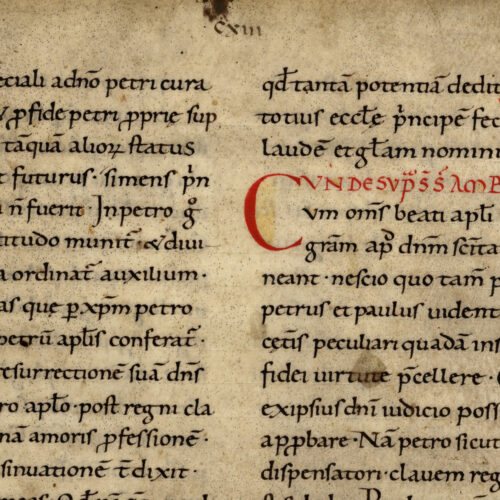 cxiii
eciali adnō petri cura
ꝓfide petri ꝓprię sup
tāquā alioꝝ status
t futurus · simens p̄n
n̄ fuerit · Inpetro gͦ
titudo munit᷒ · & diui
a ordinat᷒ auxilium ·
as quę ꝑ xp̄m petro
petrū aplīs conferat᷒ ·
resurrectionē suā dn̄s
ro aplō · post regni cla
nā amoris ꝓfessionē ·
sinuationē t̄ dixit ·
qd̄ tantā potentiā dedit
totius ecclę p̄ncipē fec
laudē et glam̄ nomini
VNDE SVP͂ S̄ S̄ AMB
Cvm om̄s beati aplī
grām apͦ dn̄m
neant · nescio quo tam p
petrus et paulus uident
cęt̄is peculiari quadā ins
fidei uirtute p̄cellere ·
exipsius dnī iudicio poss
apꝓbare · Nā petro sicut
dispensatori · clauem reg